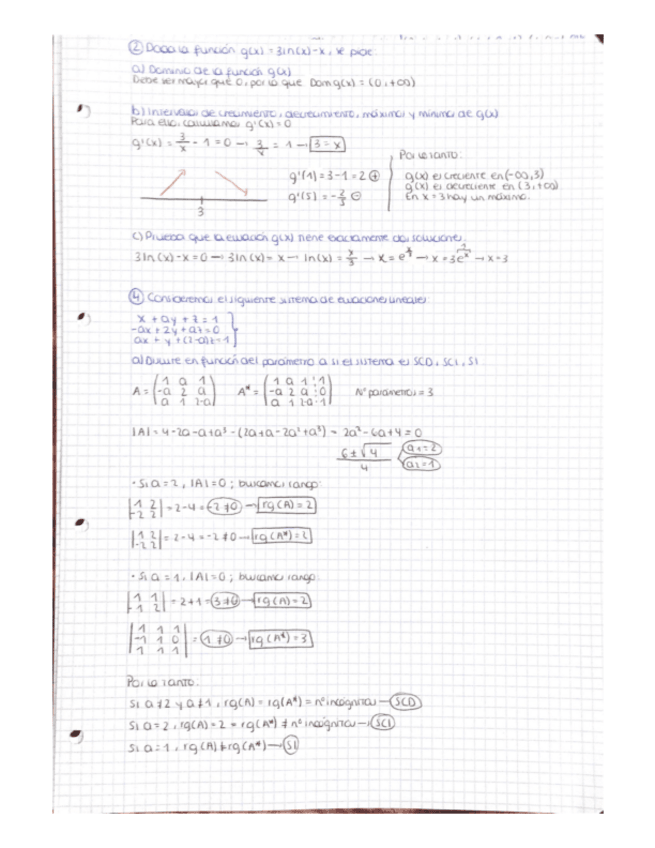 ② Dada la función g(x) = 3ln(x)-x, se pide:
a) Dominio de la función g(x)
Debe ser mayor que 0, por lo que Dom g(x) = (0, +∞)
b) Intervalos de crecimiento, decrecimiento, máximos y mínimos de g(x)
Para ello, calculamos g'(x) = 0
g'(x) = 3/x - 1 = 0 → 3/x = 1 → 3 = x
3
g'(1) = 3-1 = 2 ⊕
g'(5) = -2/3 ⊖
Por lo tanto:
g(x) es creciente en (-∞, 3)
g(x) es decreciente en (3, +∞)
En x = 3 hay un máximo.
c) Prueba que la ecuación g(x) tiene exactamente dos soluciones
3ln(x)-x=0 → 3ln(x) = x → ln(x) = x/3 → x = → x = → x=3
④ Consideremos el siguiente sistema de ecuaciones lineales:
x + ay + z = 1
-ax + 2y + az = 0
ax + y + (2-a)z = 1
a) Discute en función del parámetro a si el sistema es SCD, SCI, SI
A = (1 a 1
-a 2 a
a 1 2-a)
A* = (1 a 1 : 1
-a 2 a : 0
a 1 2-a : 1)
Nº parámetros = 3
|A| = 4-2a-a+a³-(2a+a-2a²+a³) = 2a²-6a+4 = 0
6±√4 / 4
a₁=2
a₂=1
· Si a = 2, |A|=0; buscamos rango:
|1 2
-2 2| = 2-4 = -2 ≠0 → rg(A) = 2
|1 2
-2 2| = 2-4 = -2 ≠0 → rg(A*) = 2
· Si a = 1, |A|=0; buscamos rango:
|1 1
-1 2| = 2+1 = 3≠0 → rg(A) = 2
|1 1 1
-1 1 0
1 1 1| = 1 ≠0 → rg(A*) = 3
Por lo tanto:
Si a ≠2 y a ≠1, rg(A) = rg(A*) = nº incógnitas → SCD
Si a = 2, rg(A) = 2 = rg(A*) ≠ nº incógnitas → SCI
Si a = 1, rg(A) ≠ rg(A*) → SI